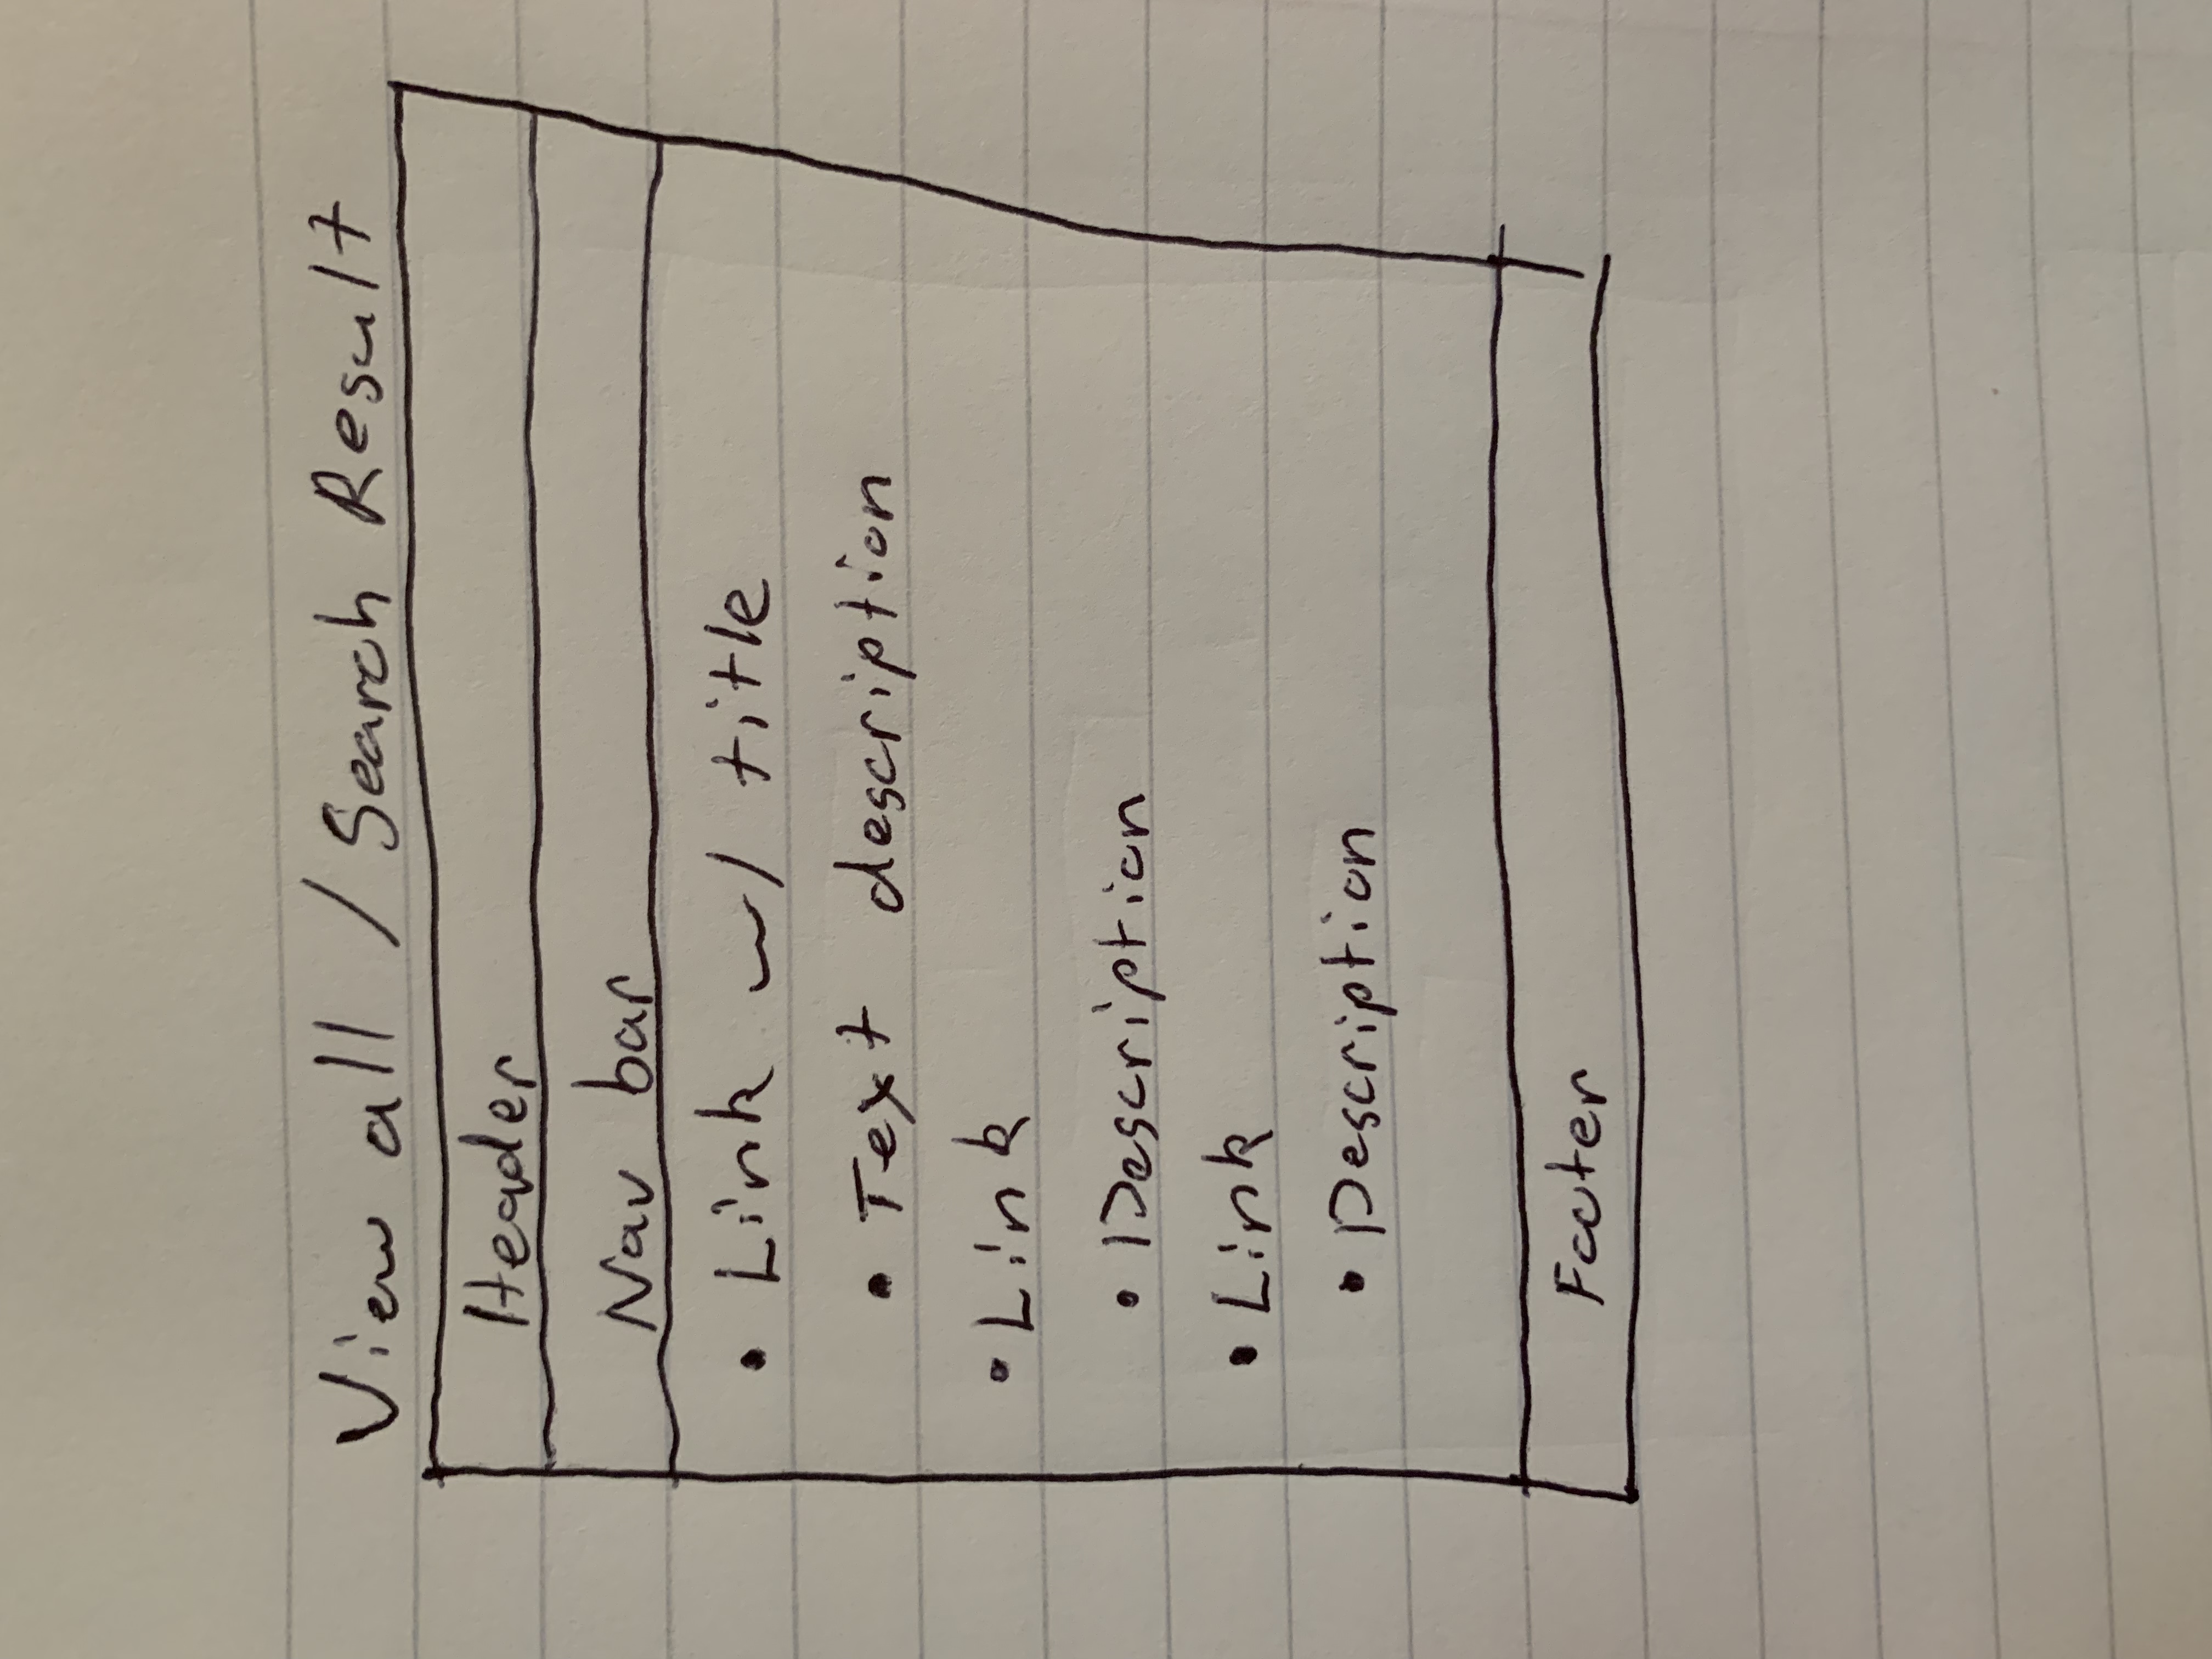 View all / Search Result
Header
Nav bar
• Link w/ title
• Text description
• Link
• Description
• Link
• Description
Footer